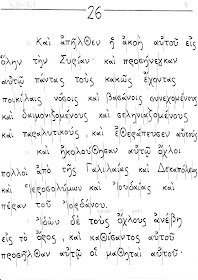 26
Καὶ ἀπῆλθεν ἡ ἀκοὴ αὐτοῦ εἰς
ὅλην τὴν Συρίαν· καὶ προσήνεγκαν
αὐτῷ πάντας τοὺς κακῶς ἔχοντας
ποικίλαις νόσοις καὶ βασάνοις συνεχομένους
καὶ δαιμονιζομένους καὶ σεληνιαζομένους
καὶ παραλυτικούς, καὶ ἐθεράπευσεν αὐτούς
καὶ ἠκολούθησαν αὐτῷ ὄχλοι
πολλοὶ ἀπὸ τῆς Γαλιλαίας καὶ Δεκαπόλεως
καὶ Ἱεροσολύμων καὶ Ἰουδαίας καὶ
πέραν τοῦ Ἰορδάνου.
Ἰδὼν δὲ τοὺς ὄχλους ἀνέβη
εἰς τὸ ὄρος, καὶ καθίσαντος αὐτοῦ
προσῆλθαν αὐτῷ οἱ μαθηταὶ αὐτοῦ·